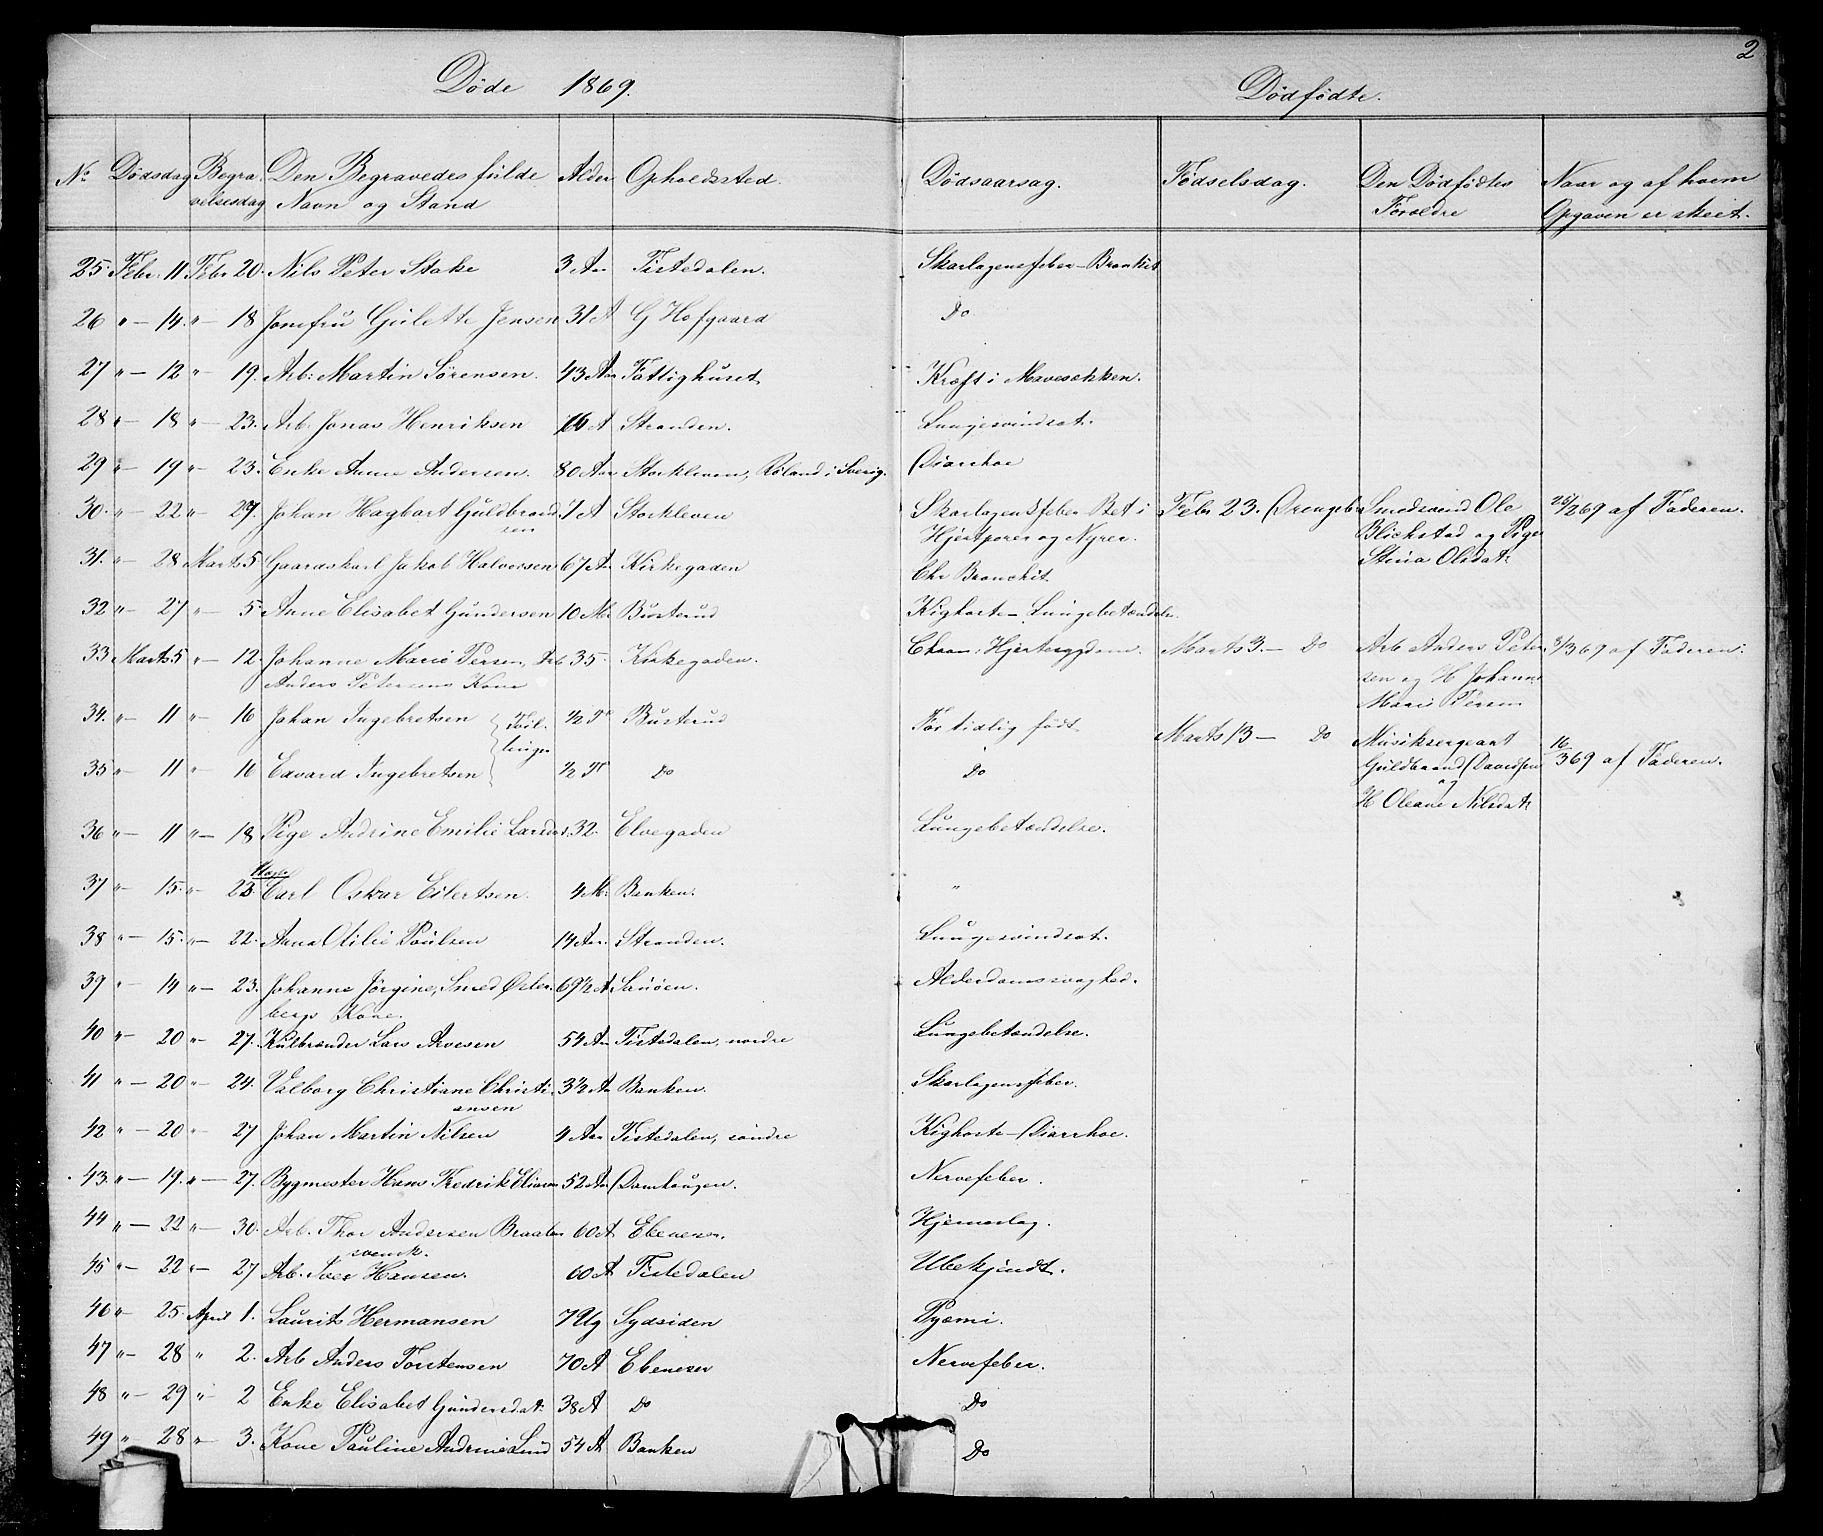 2
Døde 1869.
Dødfødte.
No Dødsdag Begra- Den Begravedes fulde Alder Opholdssted. Dødsaarsag. Fødselsdag. Den Dødfødtes Naar og af hvem
velsesdag Navn og Stand Forældre Opgaven er skeet.
25. Febr. 11 Febr 20. Nils Peter Stake 3 Aar Tistedalen. Skarlagensfeber - Bronkit
26 " — 14. " — 18 Jomfru Gulette Jensen 31 A G Hofgaard Do
27 " — 12 " — 19. Arb: Martin Sørensen. 43 Aar Fattighuset Kræft i Mavesækken.
28 " — 18 " — 23. Arb. Jonas Henriksen A Stranden. Lungesvindsot.
29 " — 19 " — 23. Enke Anne Andersen. 80 Aar Storkleven, i Sverig. Diarrhoe
30. " — 22 " — 27. Johan Hagbart Guldbrand 7 A Storkleven Skarlagensfeber Bet i Febr 23. Drengebn Smedsvend Ole 26/2 69 af Faderen.
sen Hjertporer og Nyrer. Blickstad og Pige
31. " — 28 Marts 5 Gaardskarl Jakob Halvorsen 67 Aar Kirkegaden Chr Bronchit. Stina Olsdat:
32 " — 27 " — 5. Anne Elisabet Gundersen 10 Mr Busterud Kighoste - Lungebetændelse.
33 Marts 5 " — 12. Johanne Marie Persen, Arb 35. Kirkegaden. Chron: Hjertesygdom. Marts 3. — Do Arb Anders Peter- 8/3 69 af Faderen.
Anders Petersens Kone sen og H Johanne
Marie Persen
34. " — 11 " — 16 Johan Ingebretsen Tvil- 1/2 T Busterud For tidlig født Marts 13 — Do Musiksergeant 16/3 69 af Faderen.
linger Guldbrand Davidsen
35 " — 11 " — 16 Edvard Ingebretsen 1/2 T Do Do og
H Oleane Nilsdat:
36 " — 11 " — 18 Pige Andrine Emilie Larsdat. 32. Elvegaden Lungebetændelse.
37 " — 15. " — 23. Carl Oskar Eilertsen. 4 M: Banken. "
38 " — 15. " — 22. Anna Otilie Poulsen 14 Aar. Stranden. Lungesvindsot.
39 " — 14 " — 23. Johanne Jørgine, Smed Østen- 69 1/2 A Sauøen. Alderdomssvaghed.
bergs Kone.
40 " — 20 " — 27. Kulbrænder Lars Arvesen 54 Aar Tistedalen, nordre Lungebetændelse.
41 " — 20 " — 24. Valborg Christiane Christi- 3 1/2 Aar Banken. Skarlagensfeber.
ansen
42 " — 20 " — 27 Johan Martin Nilsen 4 Aar Tistedalen, søndre Kighoste - Diarrhoe.
43. " — 19. " — 27. Bygmester Hans Fredrik Eliasen 52 Aar Damhaugen. Nervefeber.
44 " — 22 " — 30. Arb. Thor Andersen Braaten 60 A Ebeneser. Hjerneslag.
svensk.
45 " — 22 " — 27 Arb. Iver Hansen. 60 A Tistedalen Ubekjendt.
46 " — 25. April 1. Laurits Hermansen 7 Ug Sydsiden Pyæmi.
47 " — 28 " 2. Arb Anders Torstensen 70 A Ebeneser Nervefeber.
48 " — 29 " — 2 Enke Elisabet Gundersdat: 38 A Do Do
49 " — 28 " — 3. Kone Pauline Andrine Lund 54 A Banken Do